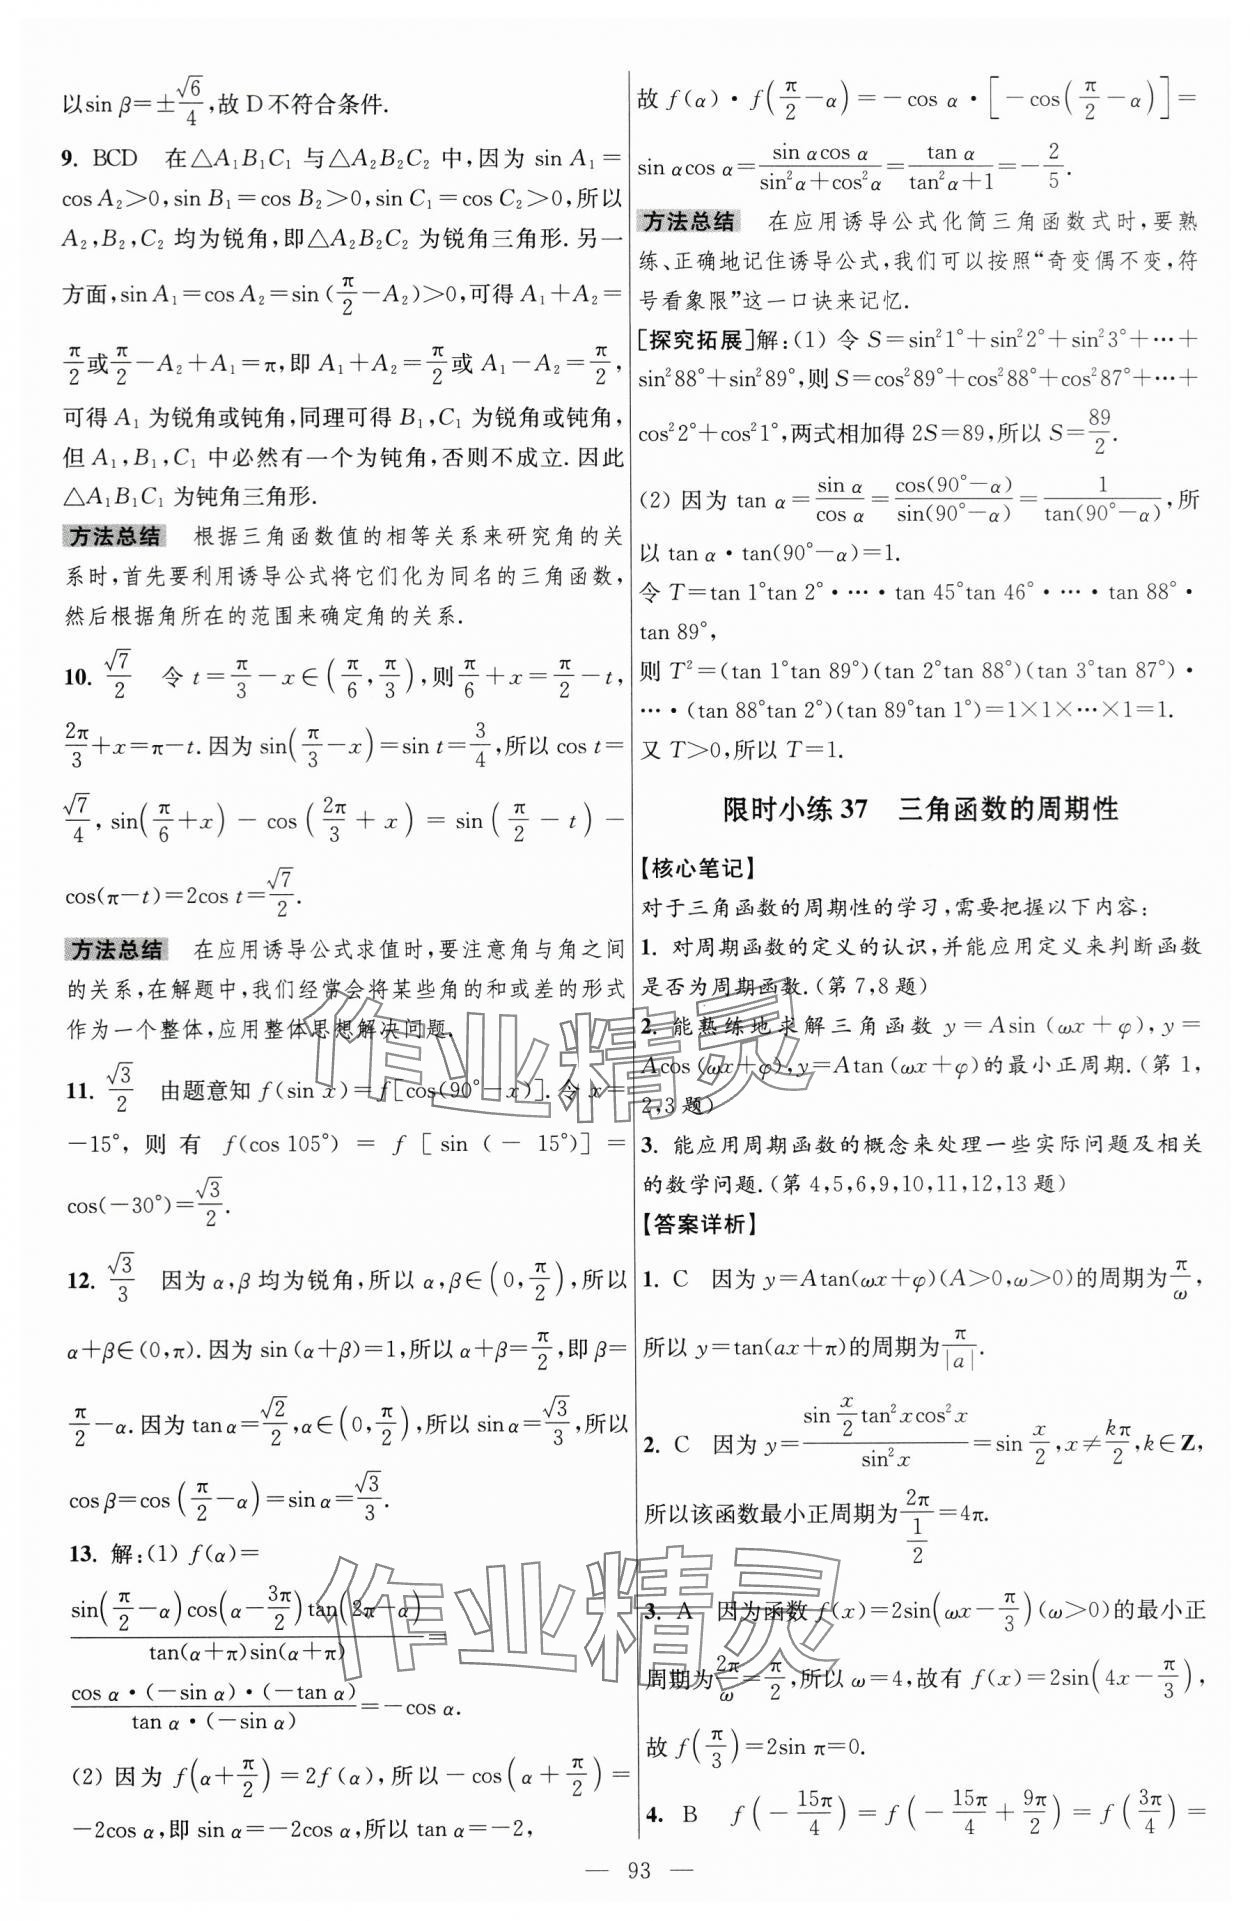 以sin β=±√6/4,故 D 不符合条件.
9. BCD　在△A₁B₁C₁ 与△A₂B₂C₂ 中,因为 sin A₁=
cos A₂>0,sin B₁=cos B₂>0,sin C₁=cos C₂>0,所以
A₂,B₂,C₂ 均为锐角,即△A₂B₂C₂ 为锐角三角形.另一
方面,sin A₁=cos A₂=sin(π/2−A₂)>0,可得 A₁+A₂=
π/2或π/2−A₂+A₁=π,即 A₁+A₂=π/2或 A₁−A₂=π/2,
可得 A₁ 为锐角或钝角,同理可得 B₁,C₁ 为锐角或钝角,
但 A₁,B₁,C₁ 中必然有一个为钝角,否则不成立.因此
△A₁B₁C₁ 为钝角三角形.
方法总结　根据三角函数值的相等关系来研究角的关
系时,首先要利用诱导公式将它们化为同名的三角函数,
然后根据角所在的范围来确定角的关系.
10. √7/2　令 t=π/3−x∈(π/6,π/3),则π/6+x=π/2−t,
2π/3+x=π−t.因为 sin(π/3−x)=sin t=3/4,所以 cos t=
√7/4,sin(π/6+x)−cos(2π/3+x)=sin(π/2−t)−
cos(π−t)=2cos t=√7/2.
方法总结　在应用诱导公式求值时,要注意角与角之间
的关系,在解题中,我们经常会将某些角的和或差的形式
作为一个整体,应用整体思想解决问题.
11. √3/2　由题意知 f(sin x)=f[cos(90°−x)].令 x=
−15°,则有 f(cos 105°)=f[sin(−15°)]=
cos(−30°)=√3/2.
12. √3/3　因为 α,β 均为锐角,所以 α,β∈(0,π/2),所以
α+β∈(0,π).因为 sin(α+β)=1,所以 α+β=π/2,即 β=
π/2−α.因为 tan α=√2/2,α∈(0,π/2),所以 sin α=√3/3,所以
cos β=cos(π/2−α)=sin α=√3/3.
13. 解:(1) f(α)=
sin(π/2−α)cos(α−3π/2)tan(2π−α)/tan(α+π)sin(α+π)=
cos α·(−sin α)·(−tan α)/tan α·(−sin α)=−cos α.
(2) 因为 f(α+π/2)=2f(α),所以−cos(α+π/2)=
−2cos α,即 sin α=−2cos α,所以 tan α=−2,
故 f(α)·f(π/2−α)=−cos α·[−cos(π/2−α)]=
sin αcos α=sin αcos α/sin²α+cos²α=tan α/tan²α+1=−2/5.
方法总结　在应用诱导公式化简三角函数式时,要熟
练、正确地记住诱导公式,我们可以按照“奇变偶不变,符
号看象限”这一口诀来记忆.
[探究拓展]解:(1) 令 S=sin²1°+sin²2°+sin²3°+…+
sin²88°+sin²89°,则 S=cos²89°+cos²88°+cos²87°+…+
cos²2°+cos²1°,两式相加得 2S=89,所以 S=89/2.
(2) 因为 tan α=sin α/cos α=cos(90°−α)/sin(90°−α)=1/tan(90°−α),所
以 tan α·tan(90°−α)=1.
令 T=tan 1°tan 2°·…·tan 45°tan 46°·…·tan 88°·
tan 89°,
则 T²=(tan 1°tan 89°)(tan 2°tan 88°)(tan 3°tan 87°)·
…·(tan 88°tan 2°)(tan 89°tan 1°)=1×1×…×1=1.
又 T>0,所以 T=1.
限时小练 37　三角函数的周期性
【核心笔记】
对于三角函数的周期性的学习,需要把握以下内容:
1. 对周期函数的定义的认识,并能应用定义来判断函数
是否为周期函数.(第 7,8 题)
2. 能熟练地求解三角函数 y=Asin(ωx+φ),y=
Acos(ωx+φ),y=Atan(ωx+φ)的最小正周期.(第 1,
2,3 题)
3. 能应用周期函数的概念来处理一些实际问题及相关
的数学问题.(第 4,5,6,9,10,11,12,13 题)
【答案详析】
1. C　因为 y=Atan(ωx+φ)(A>0,ω>0)的周期为π/ω,
所以 y=tan(ax+π)的周期为π/|a|.
2. C　因为 y=sin x/2 tan²xcos²x/sin²x=sin x/2,x≠kπ/2,k∈Z,
所以该函数最小正周期为2π/(1/2)=4π.
3. A　因为函数 f(x)=2sin(ωx−π/3)(ω>0)的最小正
周期为2π/ω=π/2,所以 ω=4,故有 f(x)=2sin(4x−π/3),
故 f(π/3)=2sin π=0.
4. B　f(−15π/4)=f(−15π/4+9π/2)=f(3π/4)=
— 93 —
作业精灵
作业精灵